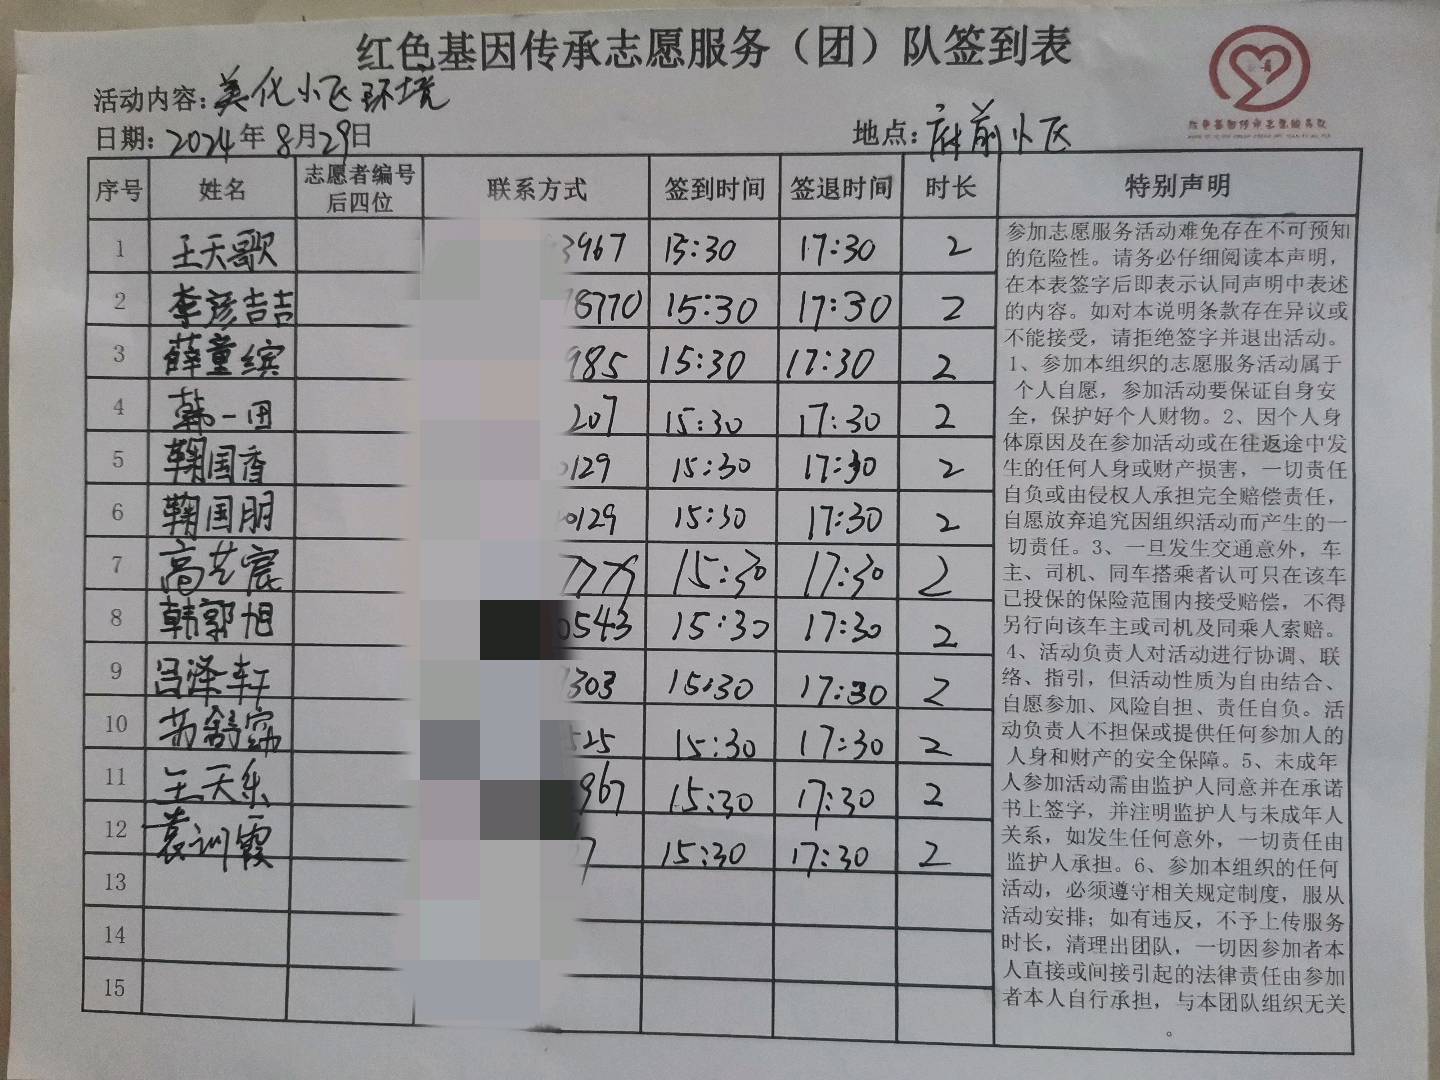 红色基因传承志愿服务（团）队签到表
活动内容：美化小区环境
日期：2024年8月29日 地点：府前小区
序号 姓名 志愿者编号后四位 联系方式 签到时间 签退时间 时长 特别声明
1 王天歌 3967 15:30 17:30 2
2 李彦吉吉 8770 15:30 17:30 2
3 薛童缤 985 15:30 17:30 2
4 韩一田 207 15:30 17:30 2
5 鞠国香 0129 15:30 17:30 2
6 鞠国朋 0129 15:30 17:30 2
7 高艺宸 15:30 17:30 2
8 韩郭旭 0543 15:30 17:30 2
9 吕泽轩 1303 15:30 17:30 2
10 525 15:30 17:30 2
11 王天乐 967 15:30 17:30 2
12 袁训霞 7 15:30 17:30 2
13
14
15
参加志愿服务活动难免存在不可预知
的危险性。请务必仔细阅读本声明，
在本表签字后即表示认同声明中表述
的内容。如对本说明条款存在异议或
不能接受，请拒绝签字并退出活动。
1、参加本组织的志愿服务活动属于
个人自愿，参加活动要保证自身安
全，保护好个人财物。2、因个人身
体原因及在参加活动或在往返途中发
生的任何人身或财产损害，一切责任
自负或由侵权人承担完全赔偿责任，
自愿放弃追究因组织活动而产生的一
切责任。3、一旦发生交通意外，车
主、司机、同车搭乘者认可只在该车
已投保的保险范围内接受赔偿，不得
另行向该车主或司机及同乘人索赔。
4、活动负责人对活动进行协调、联
络、指引，但活动性质为自由结合、
自愿参加、风险自担、责任自负。活
动负责人不担保或提供任何参加人的
人身和财产的安全保障。5、未成年
人参加活动需由监护人同意并在承诺
书上签字，并注明监护人与未成年人
关系，如发生任何意外，一切责任由
监护人承担。6、参加本组织的任何
活动，必须遵守相关规定制度，服从
活动安排；如有违反，不予上传服务
时长，清理出团队，一切因参加者本
人直接或间接引起的法律责任由参加
者本人自行承担，与本团队组织无关
。